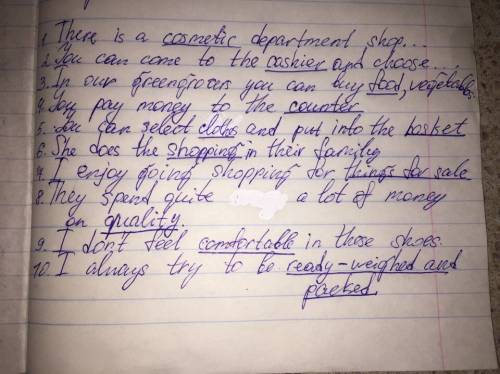 1. There is a cosmetic department shop...
2. You can come to the cashier and choose...
3. In our greengrocers you can buy food, vegetables
4. You pay money to the counter
5. You can select cloths and put into the basket
6. She does the shopping in their family
7. I enjoy going shopping for things for sale
8. They spend quite a lot of money
on quality.
9. I don't feel comfortable in those shoes.
10. I always try to be ready-weighed and
packed